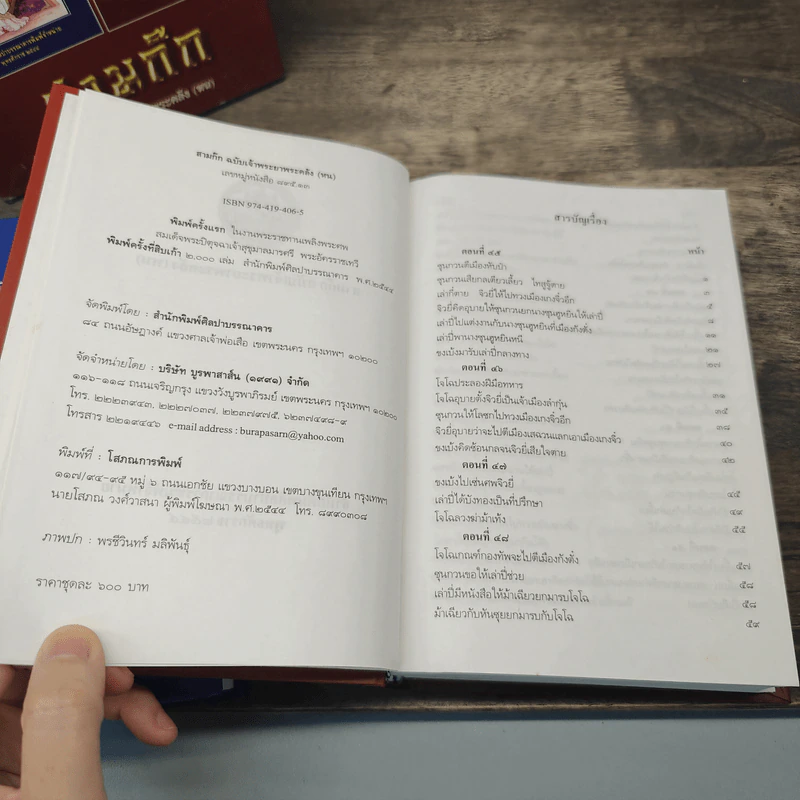 สามก๊ก
พระคลัง (หน)
สามก๊ก ฉบับเจ้าพระยาพระคลัง (หน)
เลขหมู่หนังสือ ๘๙๕.๑๓
ISBN 974-419-406-5
พิมพ์ครั้งแรก ในงานพระราชทานเพลิงพระศพ
สมเด็จพระปิตุจฉาเจ้าสุขุมาลมารศรี พระอัครราชเทวี
พิมพ์ครั้งที่สิบเก้า ๒,๐๐๐ เล่ม สำนักพิมพ์ศิลปาบรรณาคาร พ.ศ.๒๕๔๔
จัดพิมพ์โดย : สำนักพิมพ์ศิลปาบรรณาคาร
๘๔ ถนนอัษฎางค์ แขวงศาลเจ้าพ่อเสือ เขตพระนคร กรุงเทพฯ ๑๐๒๐๐
จัดจำหน่ายโดย : บริษัท บูรพาสาส์น (๑๙๙๑) จำกัด
๑๑๖-๑๑๘ ถนนเจริญกรุง แขวงวังบูรพาภิรมย์ เขตพระนคร กรุงเทพฯ ๑๐๒๐๐
โทร. ๒๒๒๓๙๔๓, ๒๒๒๗๐๓๗, ๒๒๓๗๙๗๕, ๖๒๓๗๔๙๘-๙
โทรสาร ๒๒๑๙๔๔๖ e-mail address : burapasarn@yahoo.com
พิมพ์ที่ : โสภณการพิมพ์
๑๑๗/๙๔-๙๕ หมู่ ๖ ถนนเอกชัย แขวงบางบอน เขตบางขุนเทียน กรุงเทพฯ
นายโสภณ วงศ์วาสนา ผู้พิมพ์โฆษณา พ.ศ.๒๕๔๔ โทร. ๘๙๙๐๓๐๘
ภาพปก : พรชีวินทร์ มลิพันธุ์
ราคาชุดละ ๖๐๐ บาท
สารบัญเรื่อง
ตอนที่ ๔๕ หน้า
ซุนกวนตีเมืองหับป๋า ๑
ซุนกวนเสียกลเตียวเลี้ยว ไทสูจู้ตาย
เล่ากี๋ตาย จิวยี่ให้ไปทวงเมืองเกงจิ๋วอีก ๕
จิวยี่คิดอุบายให้ซุนกวนยกนางซุนฮูหยินให้เล่าปี่ ๘
เล่าปี่ไปแต่งงานกับนางซุนฮูหยินที่เมืองกังตั๋ง ๑๑
เล่าปี่พานางซุนฮูหยินหนี ๑๗
ขงเบ้งมารับเล่าปี่กลางทาง ๒๑
ตอนที่ ๔๖ ๒๗
โจโฉประลองฝีมือทหาร
โจโฉอุบายตั้งจิวยี่เป็นเจ้าเมืองลำกุ๋น ๓๑
ซุนกวนให้โลซกไปทวงเมืองเกงจิ๋วอีก ๓๕
จิวยี่อุบายว่าจะไปตีเมืองเสฉวนแลกเอาเมืองเกงจิ๋ว ๓๘
ขงเบ้งคิดซ้อนกลจนจิวยี่เสียใจตาย ๔๐
ตอนที่ ๔๗ ๔๒
ขงเบ้งไปเซ่นศพจิวยี่
เล่าปี่ได้บังทองเป็นที่ปรึกษา ๔๕
โจโฉลวงฆ่าม้าเท้ง ๔๙
ตอนที่ ๔๘ ๕๕
โจโฉเกณฑ์กองทัพจะไปตีเมืองกังตั๋ง
ซุนกวนขอให้เล่าปี่ช่วย ๕๗
เล่าปี่มีหนังสือให้ม้าเฉียวยกมารบโจโฉ ๕๘
ม้าเฉียวกับหันซุยยกมารบกับโจโฉ ๕๘
๕๙